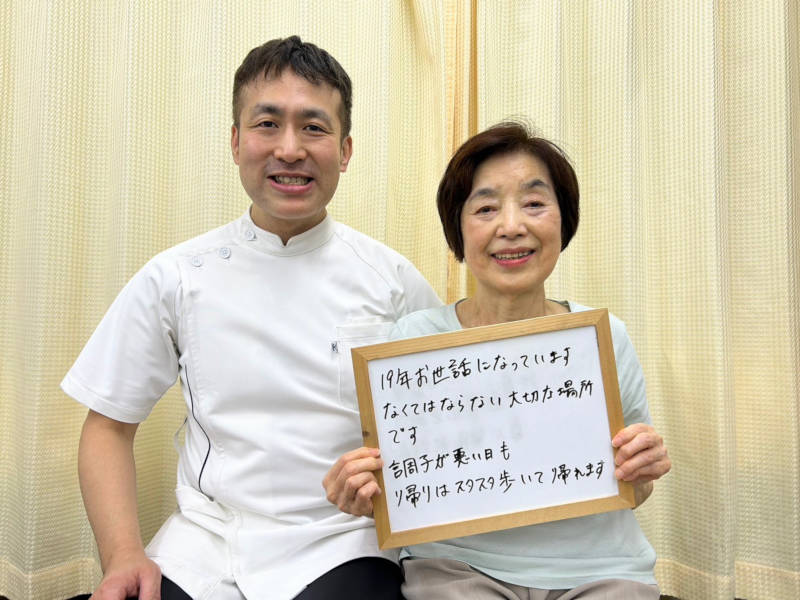 19年お世話になっています
なくてはならない大切な場所
です
調子が悪い日も
帰りはスタスタ歩いて帰れます